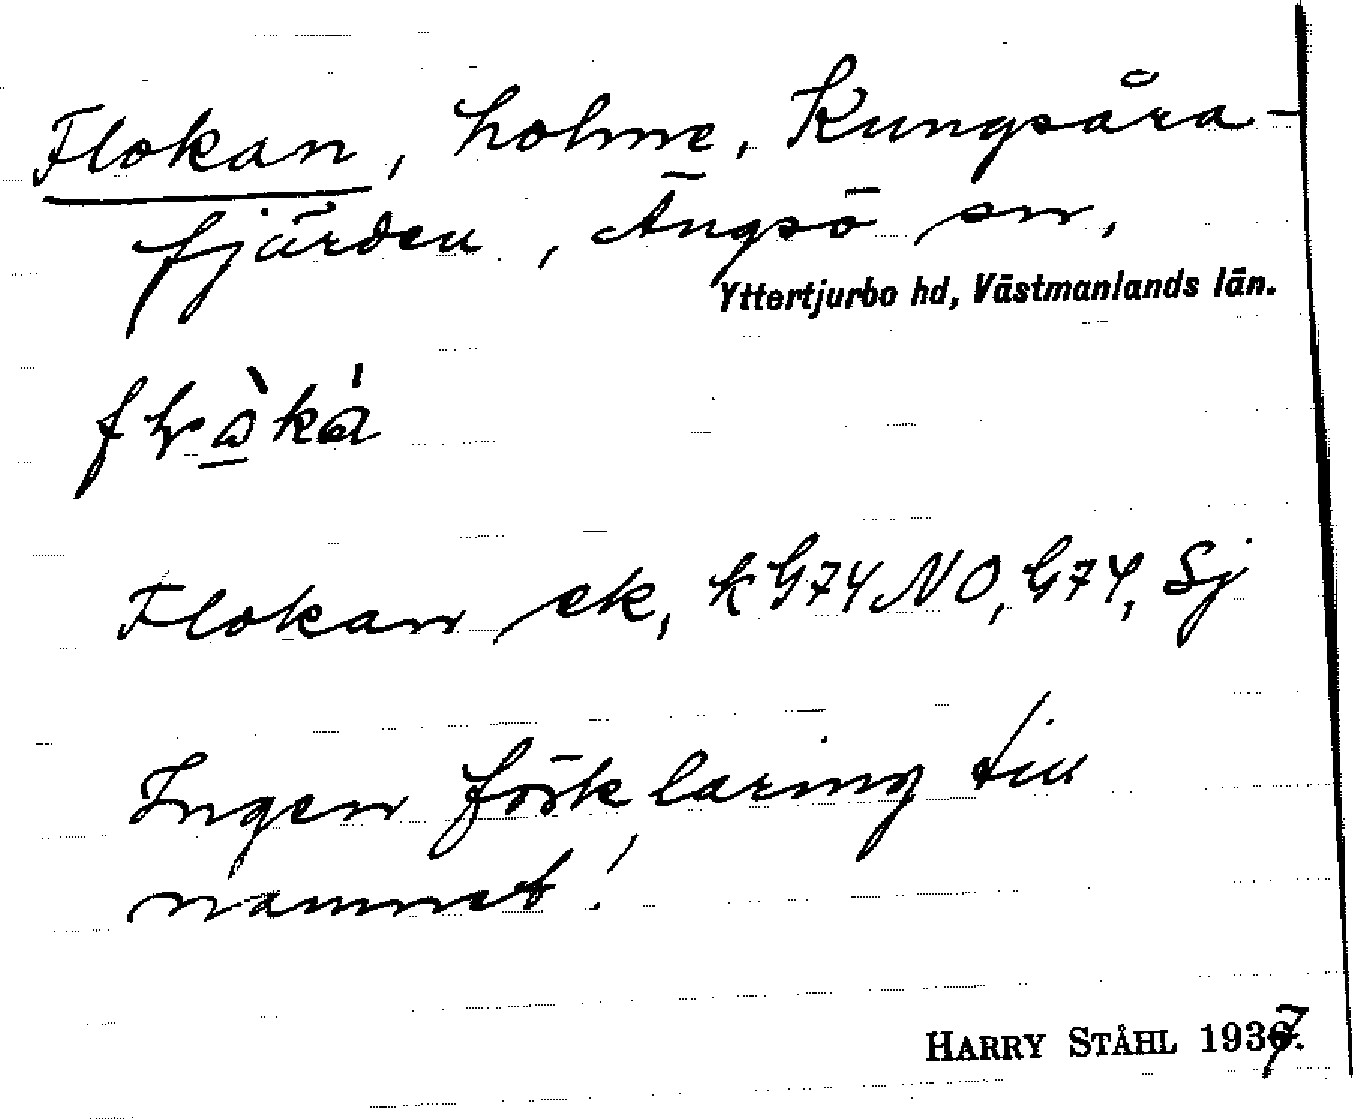 Flokan, holme, Kungsåra-
fjärden, Ängsö sn,
Yttertjurbo hd, Västmanlands län.
Flokan, ek, kG74NO, G74, Sj
Ingen förklaring till
namnet!
HARRY STÅHL 1937.